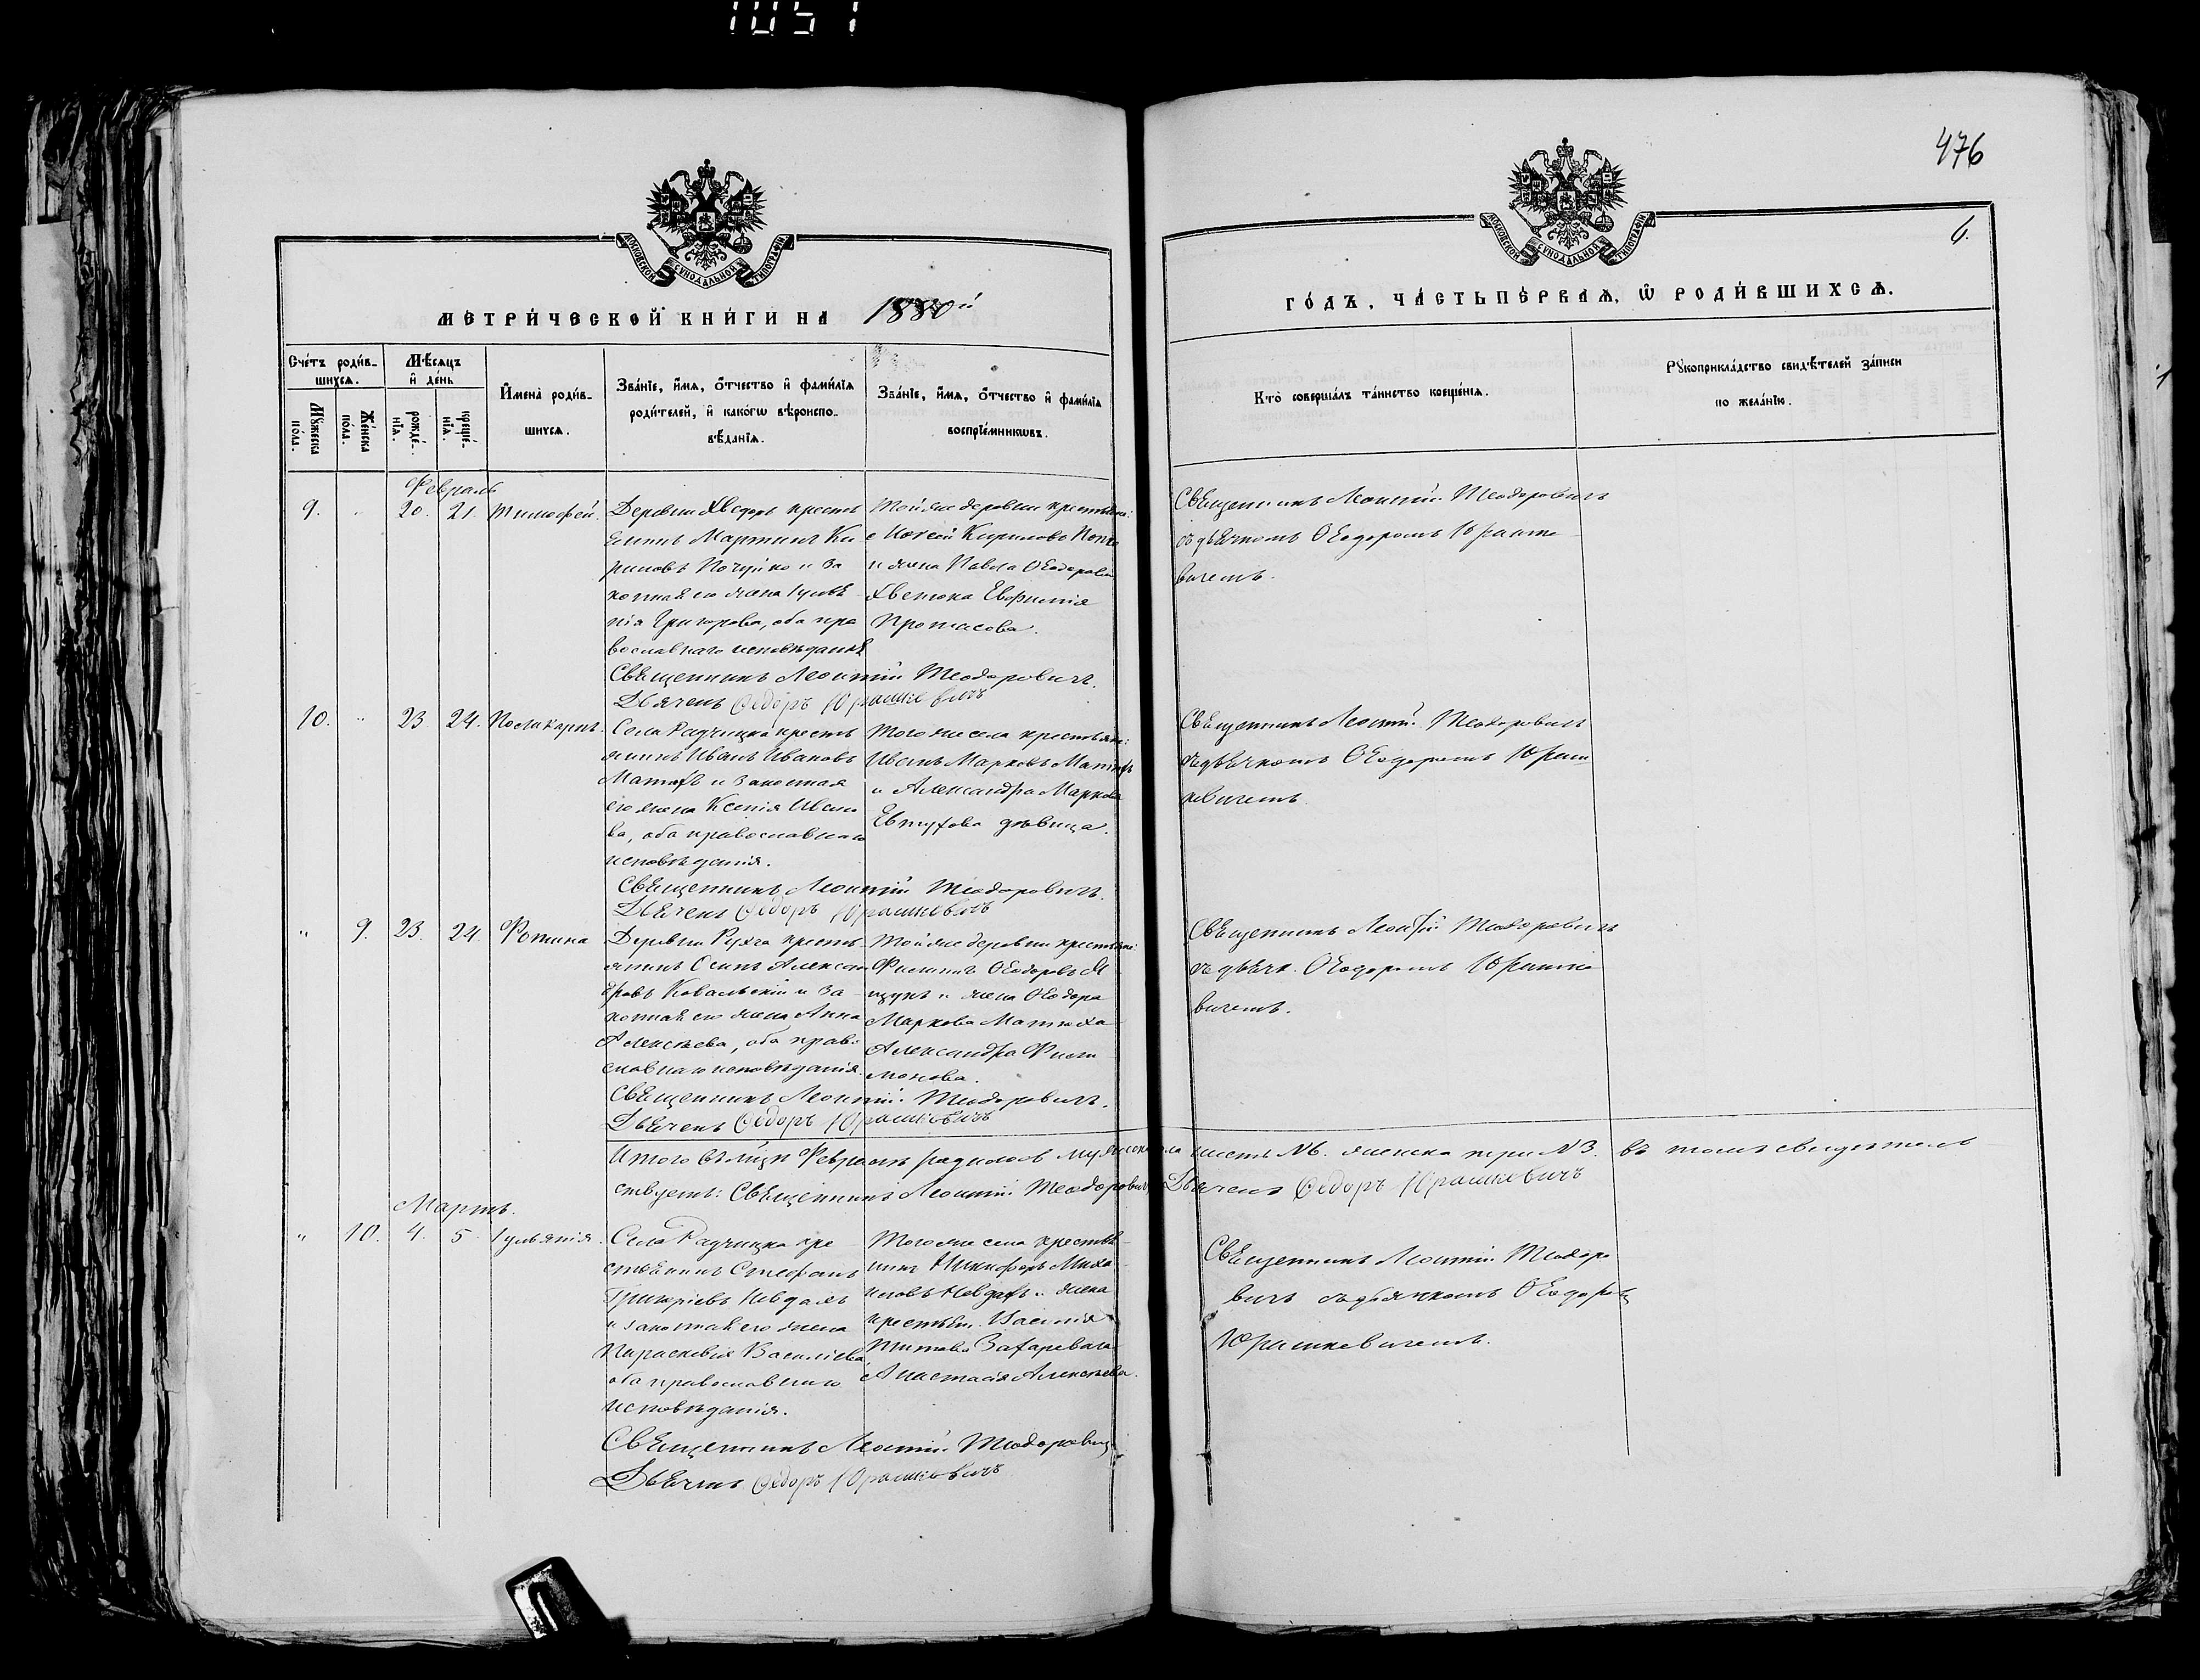 1051
476
6.
МОСКОВСКОЙ СѴНОДАЛЬНОЙ ТИПОГРАФІИ
МОСКОВСКОЙ СѴНОДАЛЬНОЙ ТИПОГРАФІИ
МЕТРИ́ЧЕСКОЙ КНИ́ГИ НА 1880й
ГО́ДЪ, ЧА́СТЬ ПЕ́РВАѦ, Ѿ РОДИ́ВШИХСѦ.
Сче́тъ роди́в-
шихсѧ.
Мѣ́сѧцъ
и҆ де́нь
Мꙋ́жеска по́ла.
Же́нска по́ла.
рожде́-
нїѧ.
креще́-
нїѧ.
И҆мена̀ роди́в-
шихсѧ.
Зва́нїе, и҆́мѧ, ѻ҆́тчество и҆ фами́лїѧ
роди́телей, и҆ како́гѡ вѣроиспо-
вѣ́данїѧ.
Зва́нїе, и҆́мѧ, ѻ҆́тчество и҆ фами́лїѧ
воспрїе́мникѡвъ.
Кто̀ соверша́лъ та́инство креще́нїѧ.
Рꙋкоприкла́дство свидѣ́телей за́писи
по жела́нїю.
Февраль
9. 20. 21. Тимофей.
Деревни Хведоръ кресть
янинъ Мартинъ Ки
риловъ и за
конная его жена Іулія
нія Григорова, оба пра
вославнаго исповѣданія
Священникъ Леонтій Теодоровичъ.
Дьячекъ Ѳедоръ Юрашкевичъ
Той же деревни крестьяне:
Кирилова
и жена Павла Ѳеодорова
Евфимія
Протасова.
Священникъ Леонтій Теодоровичъ
съ дьячкомъ Ѳеодоромъ Юрашке
вичемъ.
10. " 23 24. Поликарпъ.
Села Радчицка кресть
янинъ Иванъ Ивановъ
и законная
его жена Ксенія Ивано
ва, оба православнаго
исповѣданія.
Священникъ Леонтій Теодоровичъ.
Дьячекъ Ѳедоръ Юрашкевичъ
Того же села крестьяне:
Иванъ Марковъ
и Александра Маркова
Евтухова дѣвица.
Священникъ Леонтій Теодоровичъ
съ дьячкомъ Ѳеодоромъ Юраш
кевичемъ.
" 9. 23. 24. Фотина
Деревни Рухча кресть
янинъ Осипъ Алексан
дровъ Ковальскій и за
конная его жена Анна
Алексѣева, оба право
славнаго исповѣданія.
Священникъ Леонтій Теодоровичъ.
Дьячекъ Ѳедоръ Юрашкевичъ
Той же деревни крестьяне:
Филипъ Ѳеодоровъ
и жена Ѳеодора
Маркова
Александра Фили
монова.
Священникъ Леонтій Теодоровичъ
съ дьячк. Ѳеодоромъ Юрашке
вичемъ.
Итого въ м-цѣ Февралѣ родилось мужеска пола шесть №6. женска три №3. въ томъ свидѣтель
ствуетъ: Священникъ Леонтій Теодоровичъ Дьячекъ Ѳедоръ Юрашкевичъ
Мартъ.
" 10. 4. 5. Іуліанія.
Села Радчицка кре
стьянинъ Стефанъ
Григоріевъ Невдахъ
и законная его жена
Параскевія Василіева
оба православнаго
исповѣданія.
Священникъ Леонтій Теодоровичъ
Дьячекъ Ѳедоръ Юрашкевичъ
Того же села крестья
нинъ Никифоръ Миха
иловъ Невдахъ и жена
крестьян. Василія
Титова Захаревича
Анастасія Алексѣева.
Священникъ Леонтій Теодоро
вичъ съ дьячкомъ Ѳеодоромъ
Юрашкевичемъ.